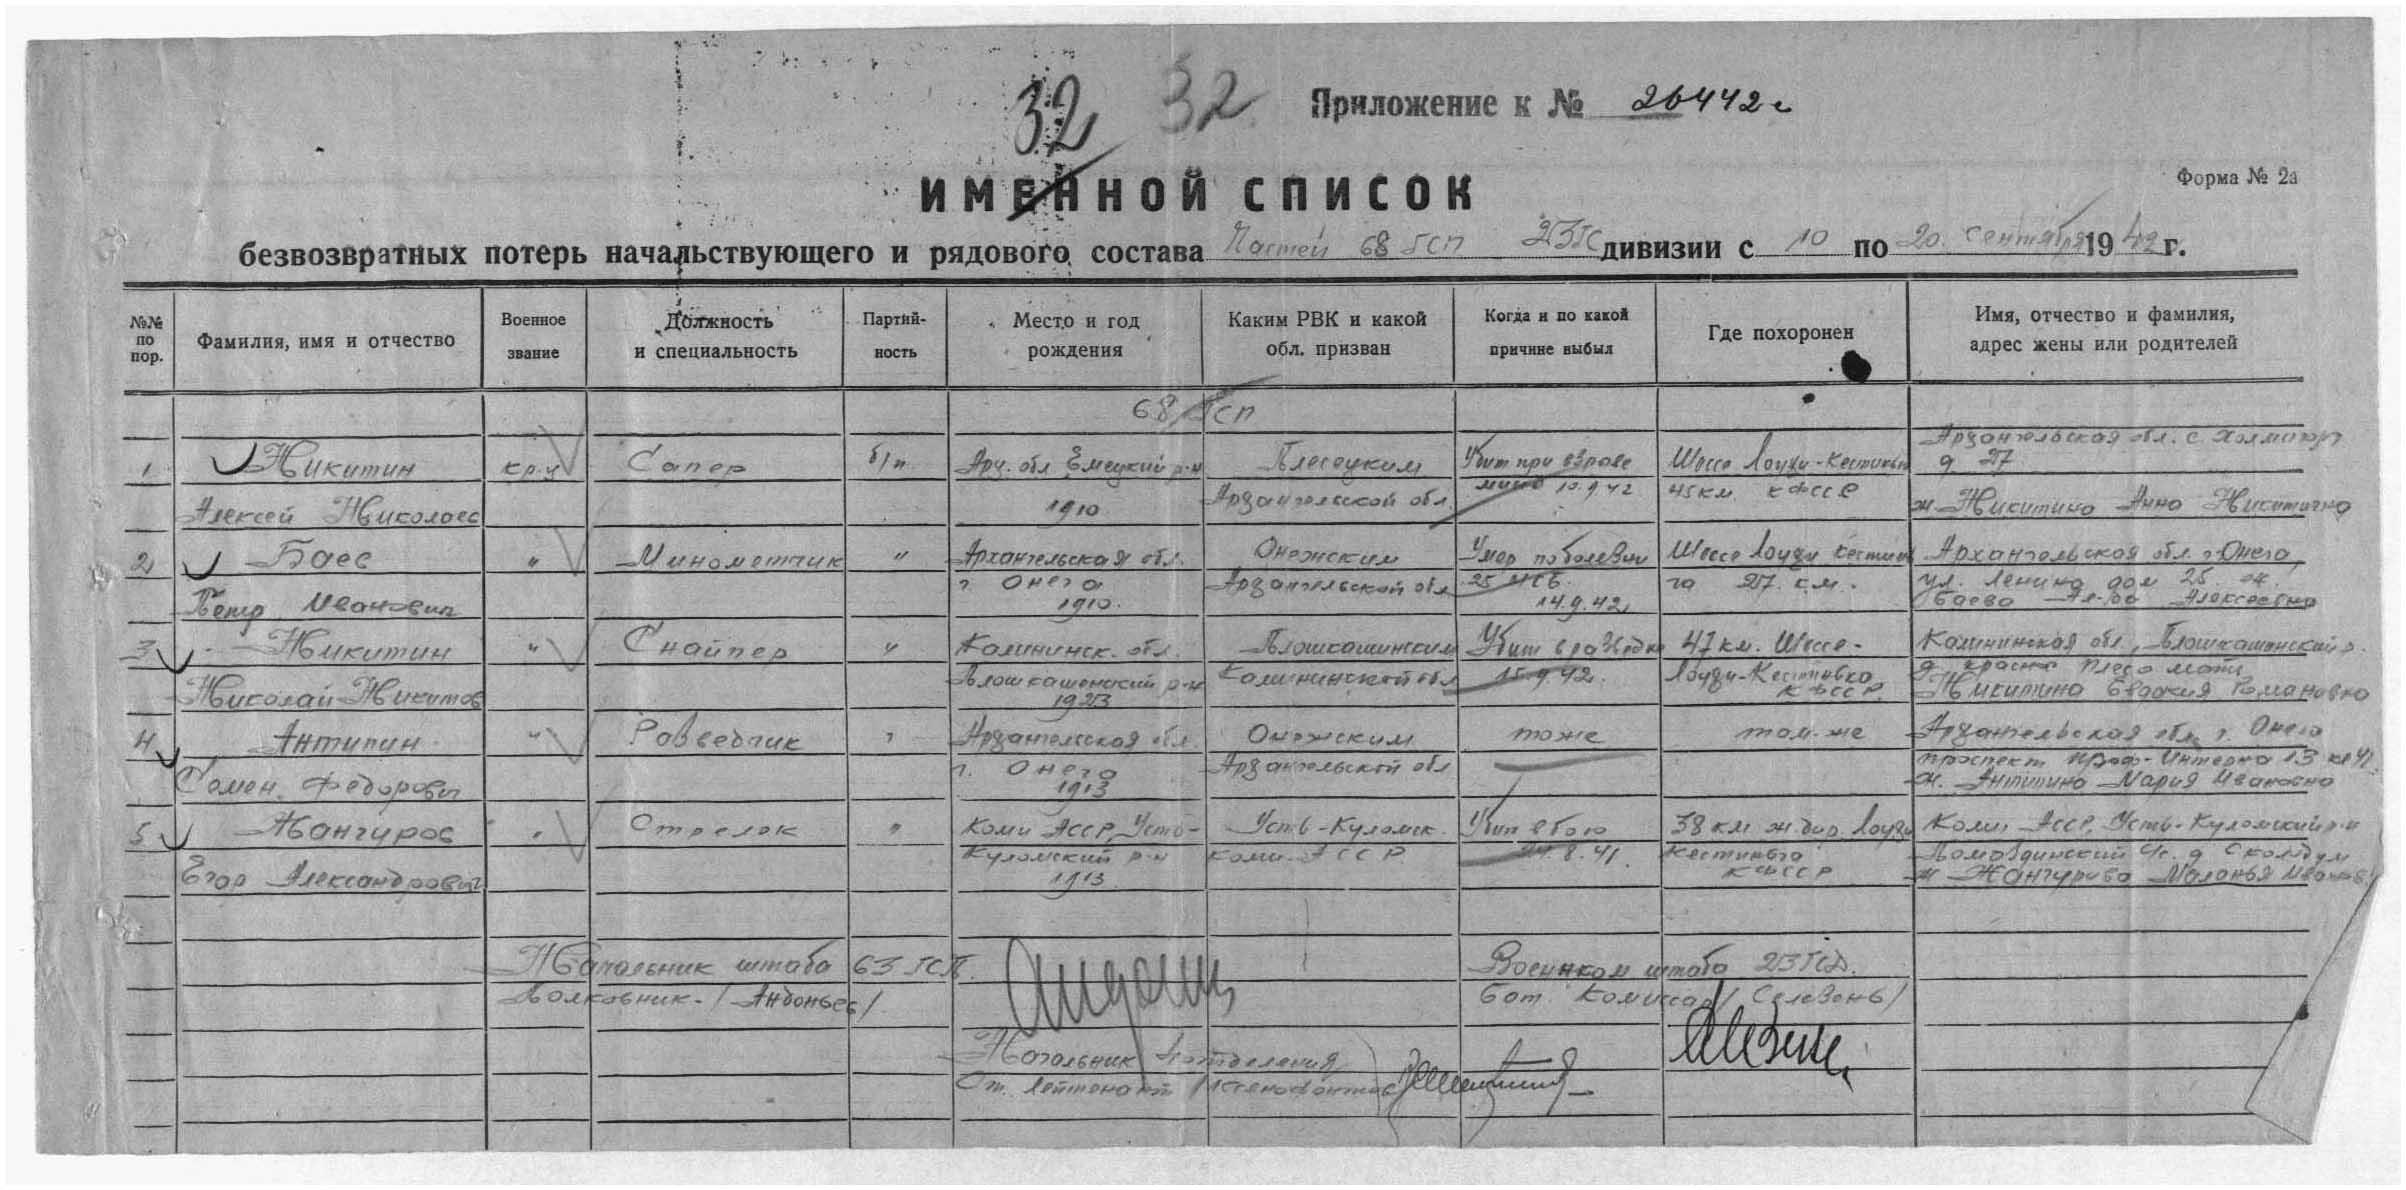 32 32 Приложение к № 26442с
Форма № 2а
ИМЕННОЙ СПИСОК
безвозвратных потерь начальствующего и рядового состава Частей 68 ГСП 23ГС дивизии с 10 по 20 сентября 1942 г.
№№ по пор.
Фамилия, имя и отчество
Военное звание
Должность и специальность
Партийность
Место и год рождения
Каким РВК и какой обл. призван
Когда и по какой причине выбыл
Где похоронен
Имя, отчество и фамилия, адрес жены или родителей
68 ГСП
1 Никитин кр-ц Сапер б/п Арх. обл Емецкий р-н Плесецким Убит при взрове Шоссе Лоухи-Кестиньга Архангельская обл. с. Холмогор
д 27
Алексей Николаев 1910 Архангельской обл. мины 10.9.42 45 км КФССР ж. Никитина Анна Никитична
2 Баев " Минометчик " Архангельская обл. Онежским Умер по болезни Шоссе Лоухи Архангельская обл. г. Онега,
г. Онега Архангельской обл 25 МСБ. 27 км. ул. Ленина дом 25 ж.
Петр Иванович 1910. 14.9.42 Баева Ал-ра Алексеевна
3 Никитин " Снайпер " Калининск. обл. Плошкашинским Убит в разведке 47 км. Шоссе- Калининская обл., Плошкашинский р.
Николай Никитов Плошкашенский р-н Калининской обл 15.9.42. Лоухи-Кестиньга д. красно Плесо мать
1923 КФССР Никитина Евдокия Романовна
4 Антипин " Разведчик " Архангельская обл. Онежским тоже там-же Архангельская обл. г. Онега
г. Онега Архангельской обл проспект Проф-Интерна 13 кв 41
Семен Федорович 1913 ж. Антипина Мария Ивановна
5 Жангуров " Стрелок " Коми АССР, Усть- Усть-Куломск. Убит в бою 38 км ж. дор. Лоухи Коми АССР, Усть-Куломский р-н
Куломский р-н Коми АССР 24.8.41. Кестиньга Помоздинский с/с. д
Егор Александрович 1913 КФССР ж Жангурова Маланья Иванов.
Начальник штаба 63 ГСП. Военком штаба 23 ГСД.
Полковник-/Андоньев/ Бат. Комиссар /Селезень/
Начальник 4 отделения
Ст. Лейтенант /Ксенофонтов/